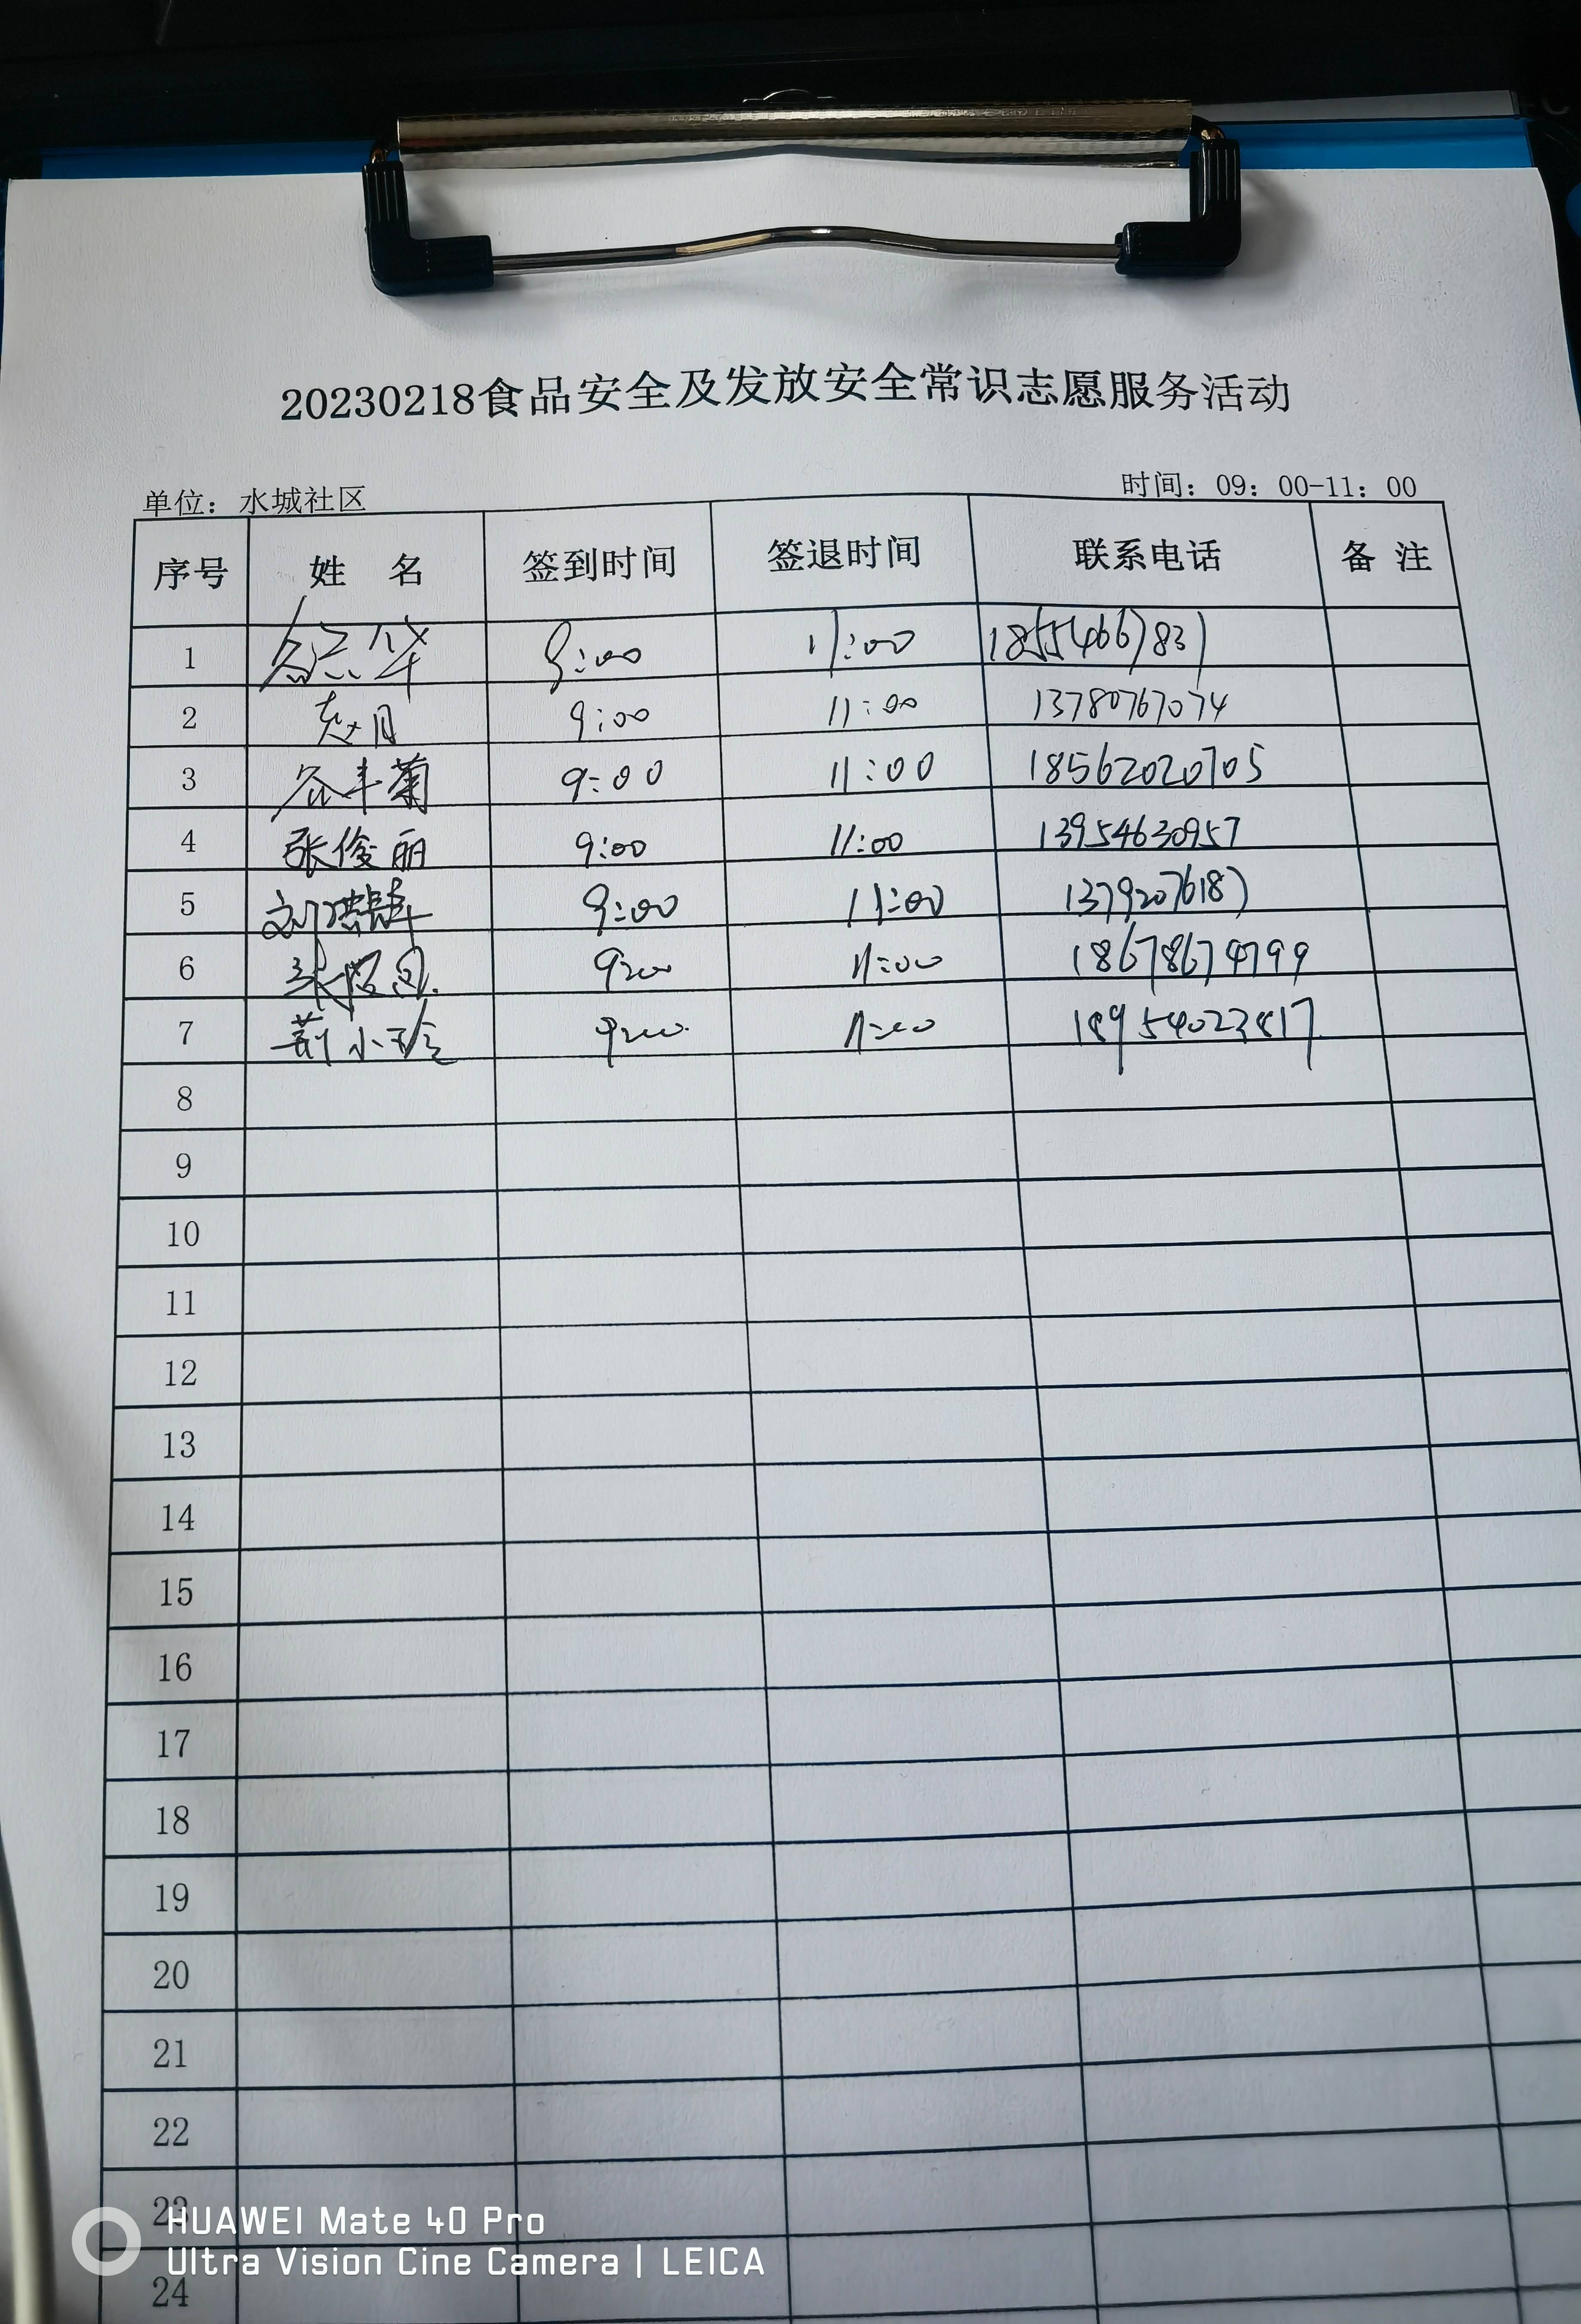 20230218食品安全及发放安全常识志愿服务活动
单位：水城社区 时间：09：00-11：00
序号 姓 名 签到时间 签退时间 联系电话 备 注
1 9:00 11:00 18554667831
2 赵月 9:00 11:00 13780767074
3 谷丰菊 9:00 11:00 18562020705
4 张俊丽 9:00 11:00 13954630957
5 9:00 11:00 13792076187
6 9:00 11:00 18678674799
7 荆小玲 9:00 11:00 18954023817
8
9
10
11
12
13
14
15
16
17
18
19
20
21
22
23
HUAWEI Mate 40 Pro
Ultra Vision Cine Camera | LEICA
24